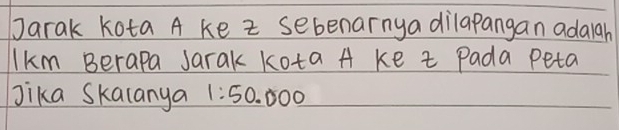 Jarak kota A ke z sebenarnya dilapangan adalah
1km Berapa Jarak kota A ke z Pada Peta
Jika Skalanya 1:50.000